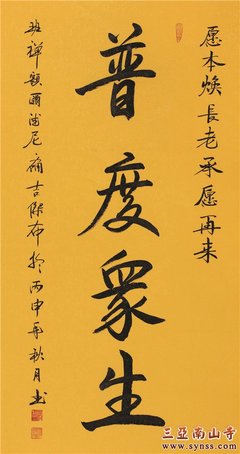 愿本焕長老承愿再来
普度衆生
班禅额爾德尼确吉傑布於丙申年秋月书
三亞南山寺
www.synss.com